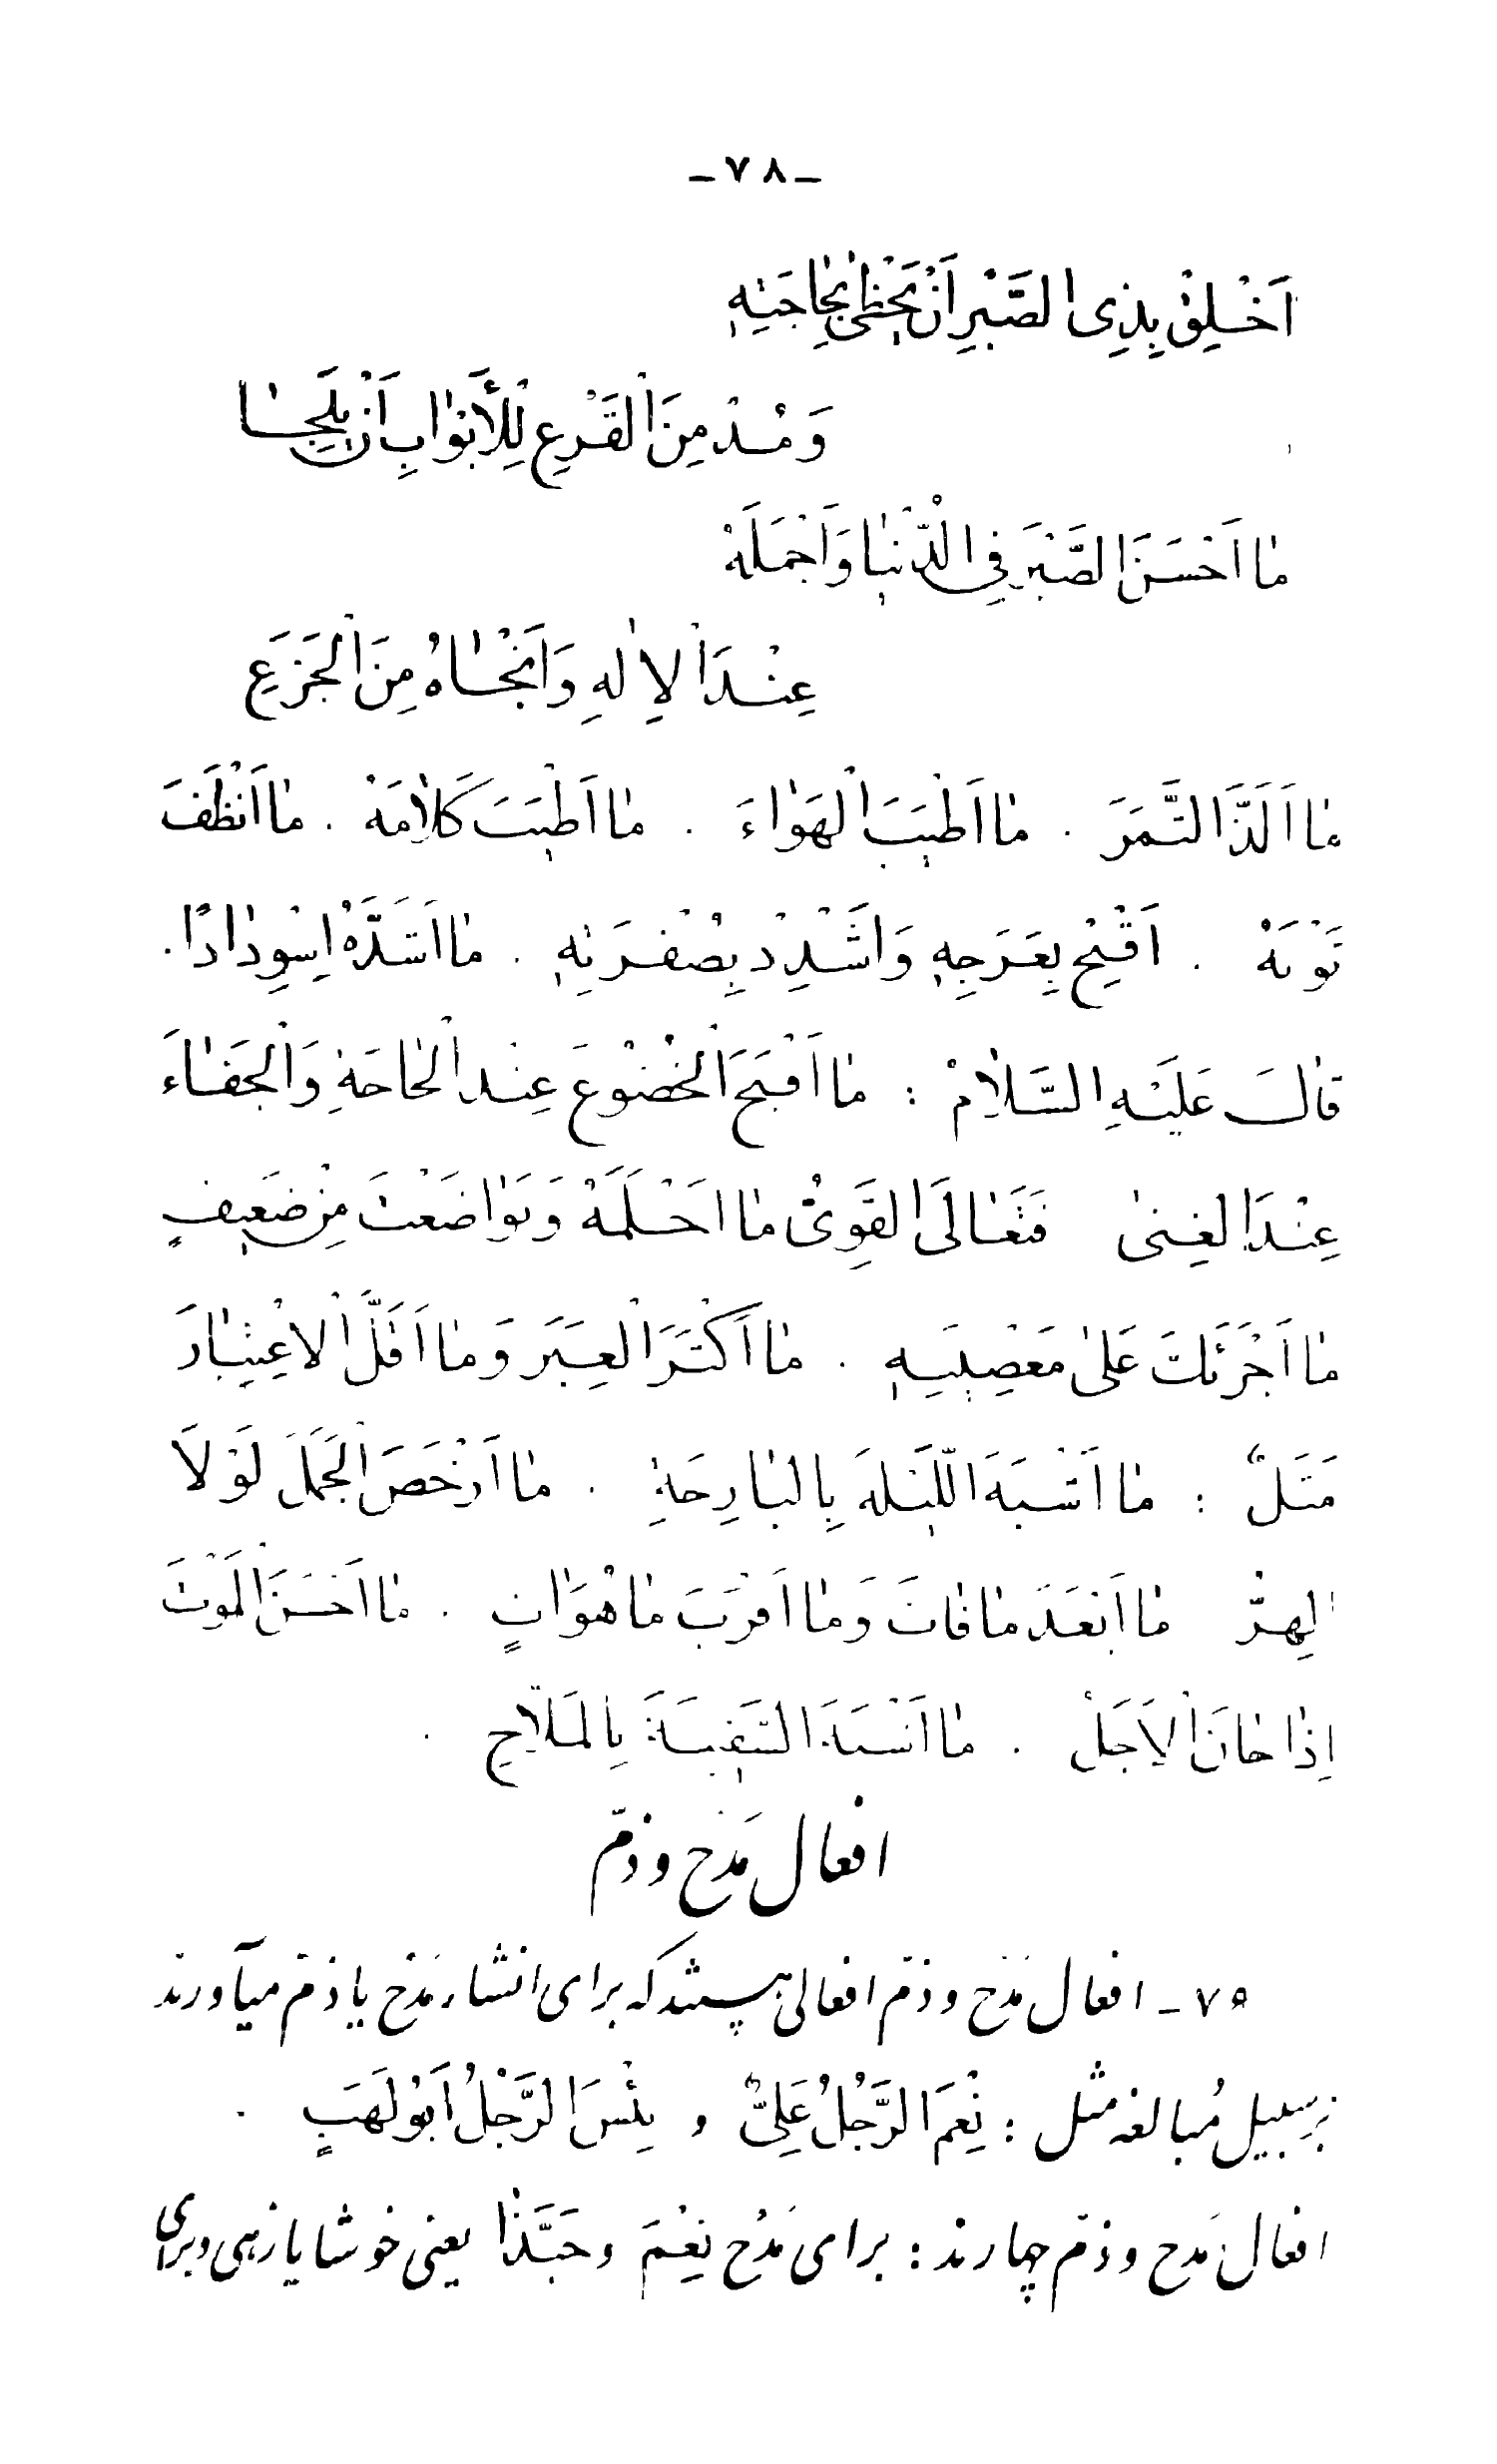 -۷۸-
اَخْلِقْ بِذِی الصَّبْرِ اَنْ یَحْظیٰ بِحٰاجَتِهِ
وَ مُدْمِنَ الْقَرْعِ لِلْأَبْوٰابِ اَنْ یَلِجٰا
مٰا اَحْسَنَ الصَّبْرَ فِی الدُّنْیٰا وَ اَجْمَلَهُ
عِنْدَ الْاِلٰهِ وَ اَنْجٰاهُ مِنَ الْجَزَعِ
مٰا اَلَذَّ التَّمَرَ . مٰا اَطْیَبَ الْهَوٰاءَ . مٰا اَطْیَبَ کَلٰامَهُ . مٰا اَنْظَفَ
ثَوْبَهُ . اَقْبِحْ بِعَرَجِهِ وَ اَشْدِدْ بِصُفْرَتِهِ . مٰا اَشَدَّهُ اِسْوِدٰادًا .
قٰالَ عَلَیْهِ السَّلٰامُ : مٰا اَقْبَحَ الْخُضُوْعَ عِنْدَ الْحٰاجَةِ وَ الْجَفٰاءَ
عِنْدَ الْغِنیٰ فَتَعٰالَی الْقَوِیُّ مٰا اَحْلَمَهُ وَ تَوٰاضَعْتَ مِنْ ضَعیفٍ
مٰا اَجْرَئَکَ عَلیٰ مَعْصِیَتِهِ . مٰا اَکْثَرَ الْعِبَرَ وَ مٰا اَقَلَّ الْاِعْتِبٰارَ
مَثَلٌ : مٰا اَشْبَهَ اللَّیْلَةَ بِالْبٰارِحَةِ . مٰا اَرْخَصَ الْجَمَلَ لَوْلَا
الْهِرُّ مٰا اَبْعَدَ مٰا فٰاتَ وَ مٰا اَقْرَبَ مٰا هُوَ اٰتٍ . مٰا اَحْسَنَ الْمَوْتَ
اِذٰا حٰانَ الْاَجَلُ . مٰا اَشْبَهَ السَّفینَةَ بِالْمَلّاحِ .
افعال مَدْح و ذمّ
۷۹- افعال مَدْح و ذمّ افعالی هستند که برای انشاء مَدْح یا ذمّ میآورند
برسبیل مُبالغه مثل : نِعْمَ الرَّجُلُ عَلِیٌّ و بِئْسَ الرَّجُلُ اَبُوْلَهَبٍ .
افعال مَدح و ذمّ چهارند : برای مَدْح نِعْمَ و حَبَّذٰا یعنی خوشا یا زهی و برای